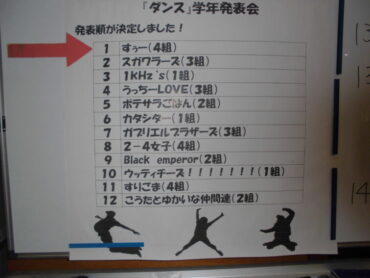 『ダンス』学年発表会
発表順が決定しました！
1 すぅー(4組)
2 スガワラーズ(3組)
3 1KHz`s(1組)
4 うっちーLOVE(3組)
5 ポテサラごはん(2組)
6 カタシター(1組)
7 ガブリエルブラザーズ(3組)
8 2－4女子(4組)
9 Black emperor(2組)
10 ウッティチーズ！！！！！！！(1組)
11 すりごま(4組)
12 こうたとゆかいな仲間達(2組)